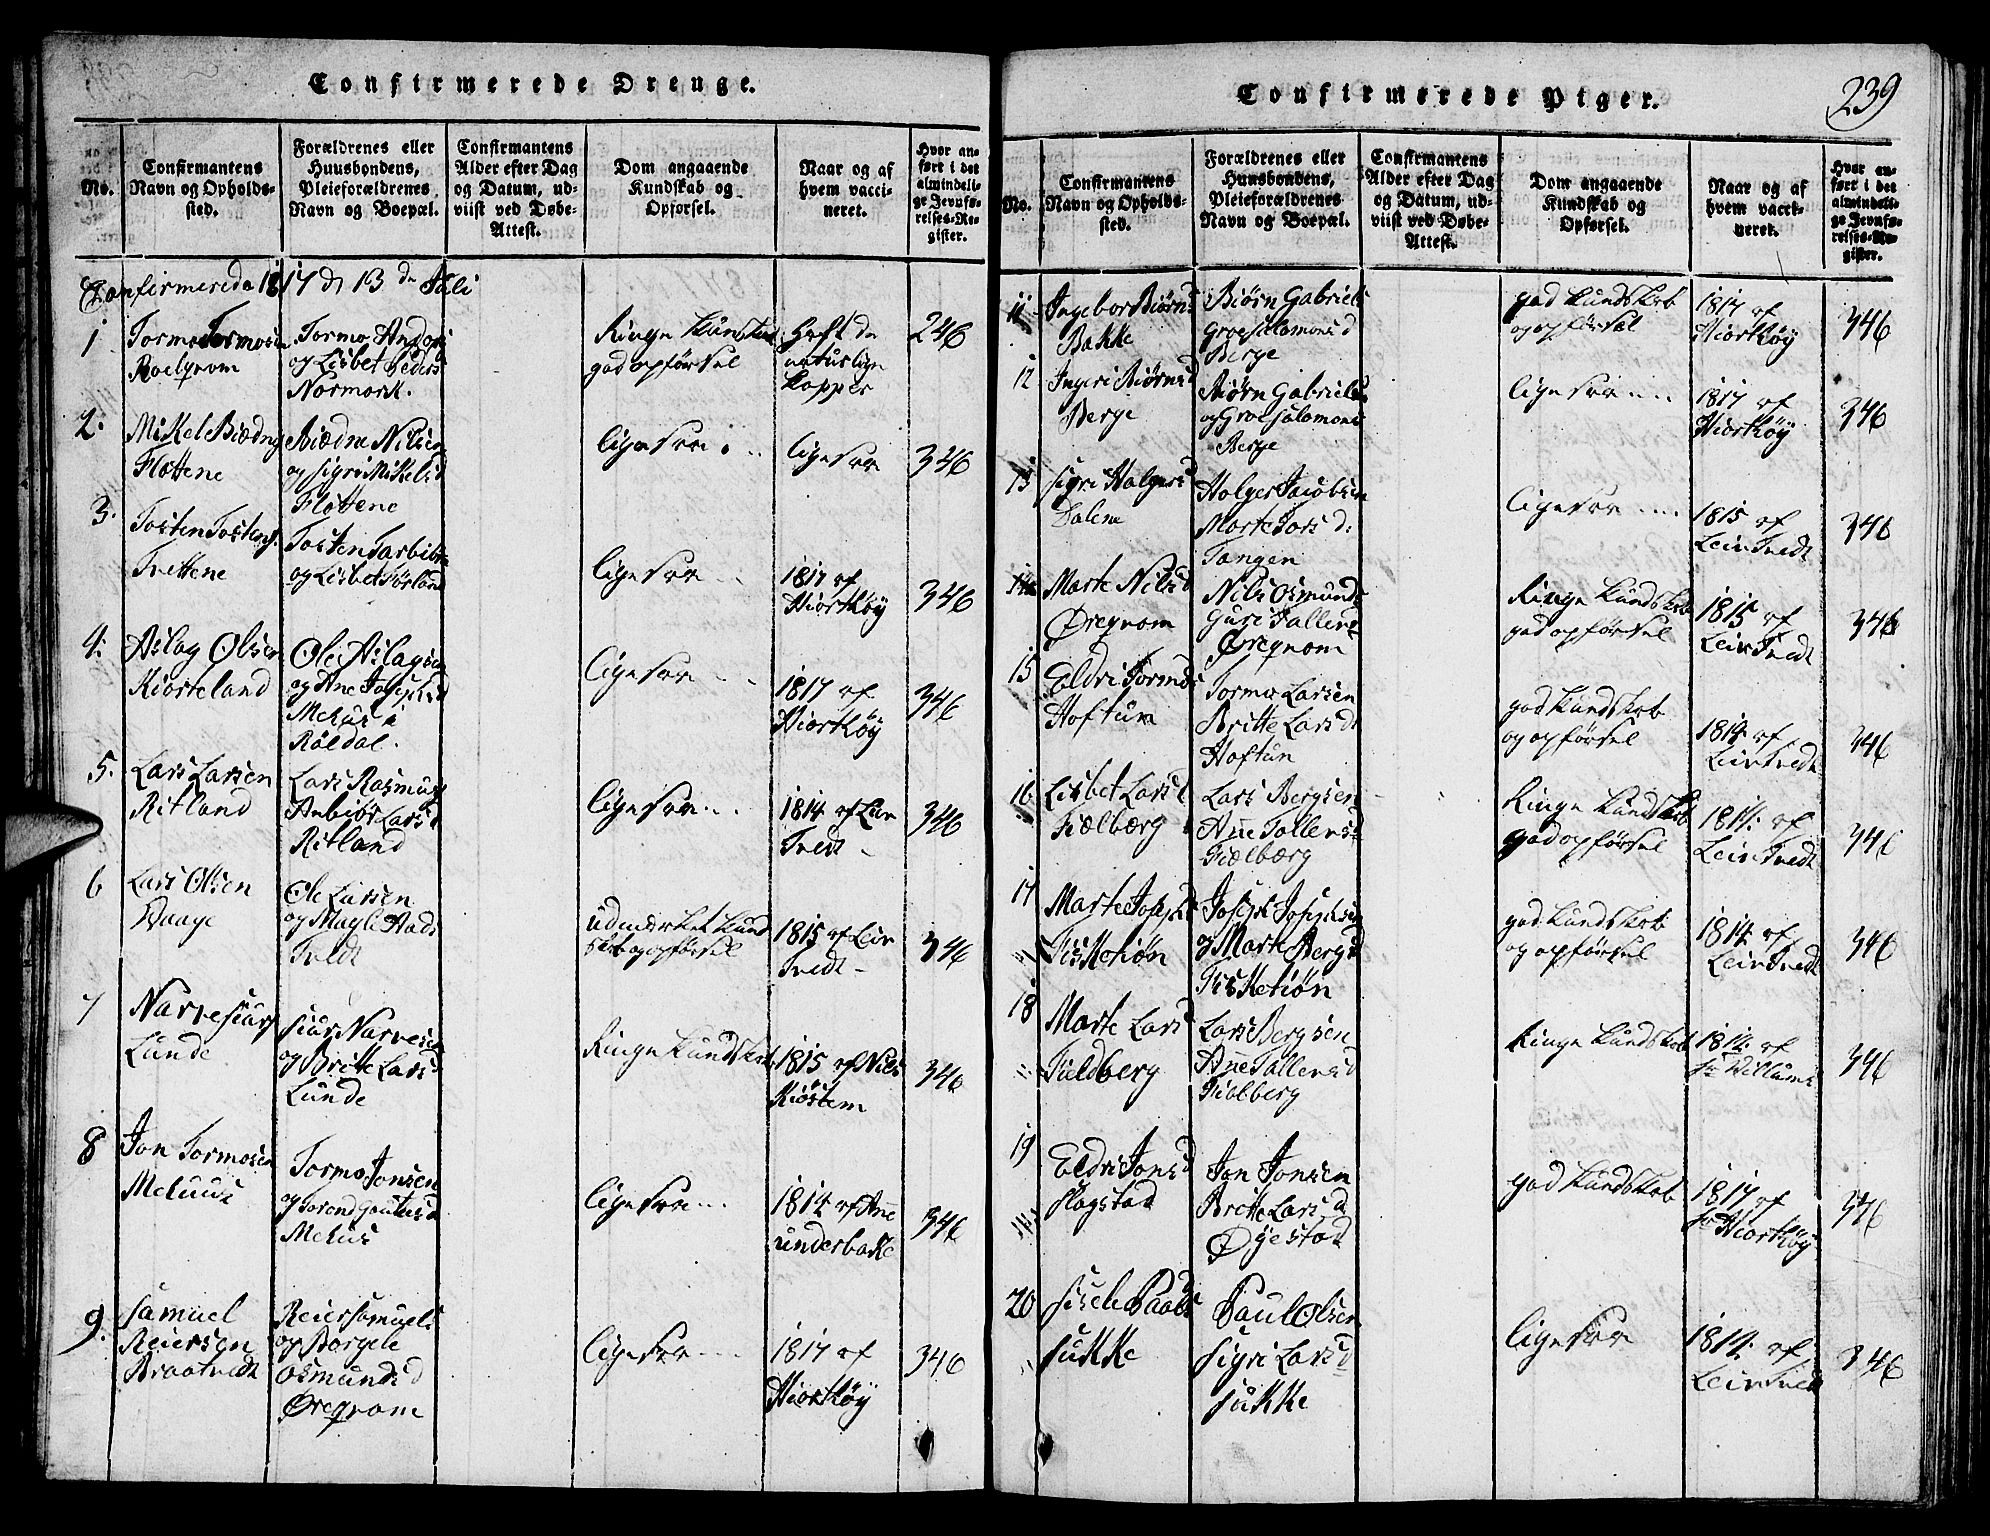 Confirmerede Drenge.
No.
Confirmantens
Navn og Opholds-
sted.
Forældrenes eller
Huusbondens,
Pleieforældrenes
Navn og Boepæl.
Confirmantens
Alder efter Dag
og Datum, ud-
viist ved Døbe-
Attest.
Dom angaaende
Kundskab og
Opførsel.
Naar og af
hvem vacci-
neret.
Hvor an-
ført i det
almindeli-
ge Jevnfø-
relses-Re-
gister.
Confirmerede 1817 d 13 de Juli
1
Tormo Tormosen
Roelqvom
Tormo
og Lisbet Peders
Normork.
Ringe Kundskab
god opførsel
Haft de
natuslige
kopper
246
2.
Mikel Biødns
Flottene
Biødne Nilsen
og Sigri Mikelsd
Flottene
ligesaa
ligesaa
346
3.
Tosten Tostens.
Trettene
Tosten Tarbiks
og Lisbet Førland
ligesaa
1817 af
Hiorthöy
346
4.
Aslag Olsen
Kiorteland
Ole Aslagsen
og Ane Josephsd
Mehus i
Röldal.
ligesaa
1817 af
Hiorthöy
346
5.
Lars Larsen
Ritland
Lars Rasmus
Anbiör Larsd
Ritland
ligesaa
1814 af Leir
Tvedt
346
6
Lars Olsen
Vaage
Ole Larsen
og Magle Hads
Tvedt
udmærket kund
skab og opförsel
1815 af Leir
Tvedt
346
7
Narve Siurs
Lunde
Siur Narvesen
og Britte Larsd
Lunde
Ringe Kundskab
1815 af Nils
Kiöstem
346
8
Jon Tormosen
Mehuus
Tormo Jonsen
og Torond Gautesd
Mehus
ligesaa
1814 af Ane
underbakke
346
9.
Samuel
Reiersen
Braatvedt
Reier Samuels
og Borgele
Osmundsd
Öreqvom
ligesaa
1817 af
Hiorthöy
346
Confirmerede Piger.
239
No.
Confirmantens
Navn og Opholds-
sted.
Forældrenes eller
Huusbondens,
Pleieforældrenes
Navn og Boepæl.
Confirmantens
Alder efter Dag
og Datum, ud-
viist ved Døbe-
Attest.
Dom angaaende
Kundskab og
Opførsel.
Naar og af
hvem vacci-
neret.
Hvor an-
ført i det
almindeli-
ge Jevnfø-
relses-Re-
gister.
11
Ingebor Biørns
Bakke
Biørn Gabriels
Groe Salomonsd
Berge
god Kundskab
og opförsel
1817 af
Hiorthöy
346
12
Ingeri Biørnsd
Berge
Biørn Gabriels
og Groe Salomons
Berge
ligesaa
1817 af
Hiorthöy
346
13
Sigri Holgers
Dalene
Holger Jacobsen
Marte Torsd:
Tangen
ligesaa
1815 af
Leir Tvedt
346
14
Marte Nilsd
Öreqvom
Nils Osmunds
Guri Tallevs
Öreqvom
Ringe Kundskab
god opförsel
1815 af
Leir Tvedt
346
15
Eldri Tormds
Hoftun
Tormo Larsen
Britte Larsd
Hoftun
god Kundskab
og opförsel
1814 af
Leir Tvedt
346
16
Lisbet Larsd
Fiælbærg
Lars Bergsen
Ane Tallevsd
Fiælbærg
Ringe Kundskab
god opförsel
1814 af
Leir Tvedt
346
17
Marte Josephs
Fisketiön
Joseph Josephsen
og Marte Bergsd
Fisketiön
god Kundskab
og opförsel
1814 af
Leir Tvedt
346
18
Marte Lars
Fieldberg
Lars Bergsen
Ane Tallevsd
Fiolberg
Ringe Kundskab
1814 af
Fr Willums
346
19
Eldri Jonsd
Hogstad
Jon Jonsen
Britte Larsd
Öyestad
god Kundskab
1817 af
Fr Hiorthöy
346
20
Sisele Paals
Sukke
Paul Olsen
Sigri Larsd
Sukke
ligesaa
1814 af
Leir Tvedt
346